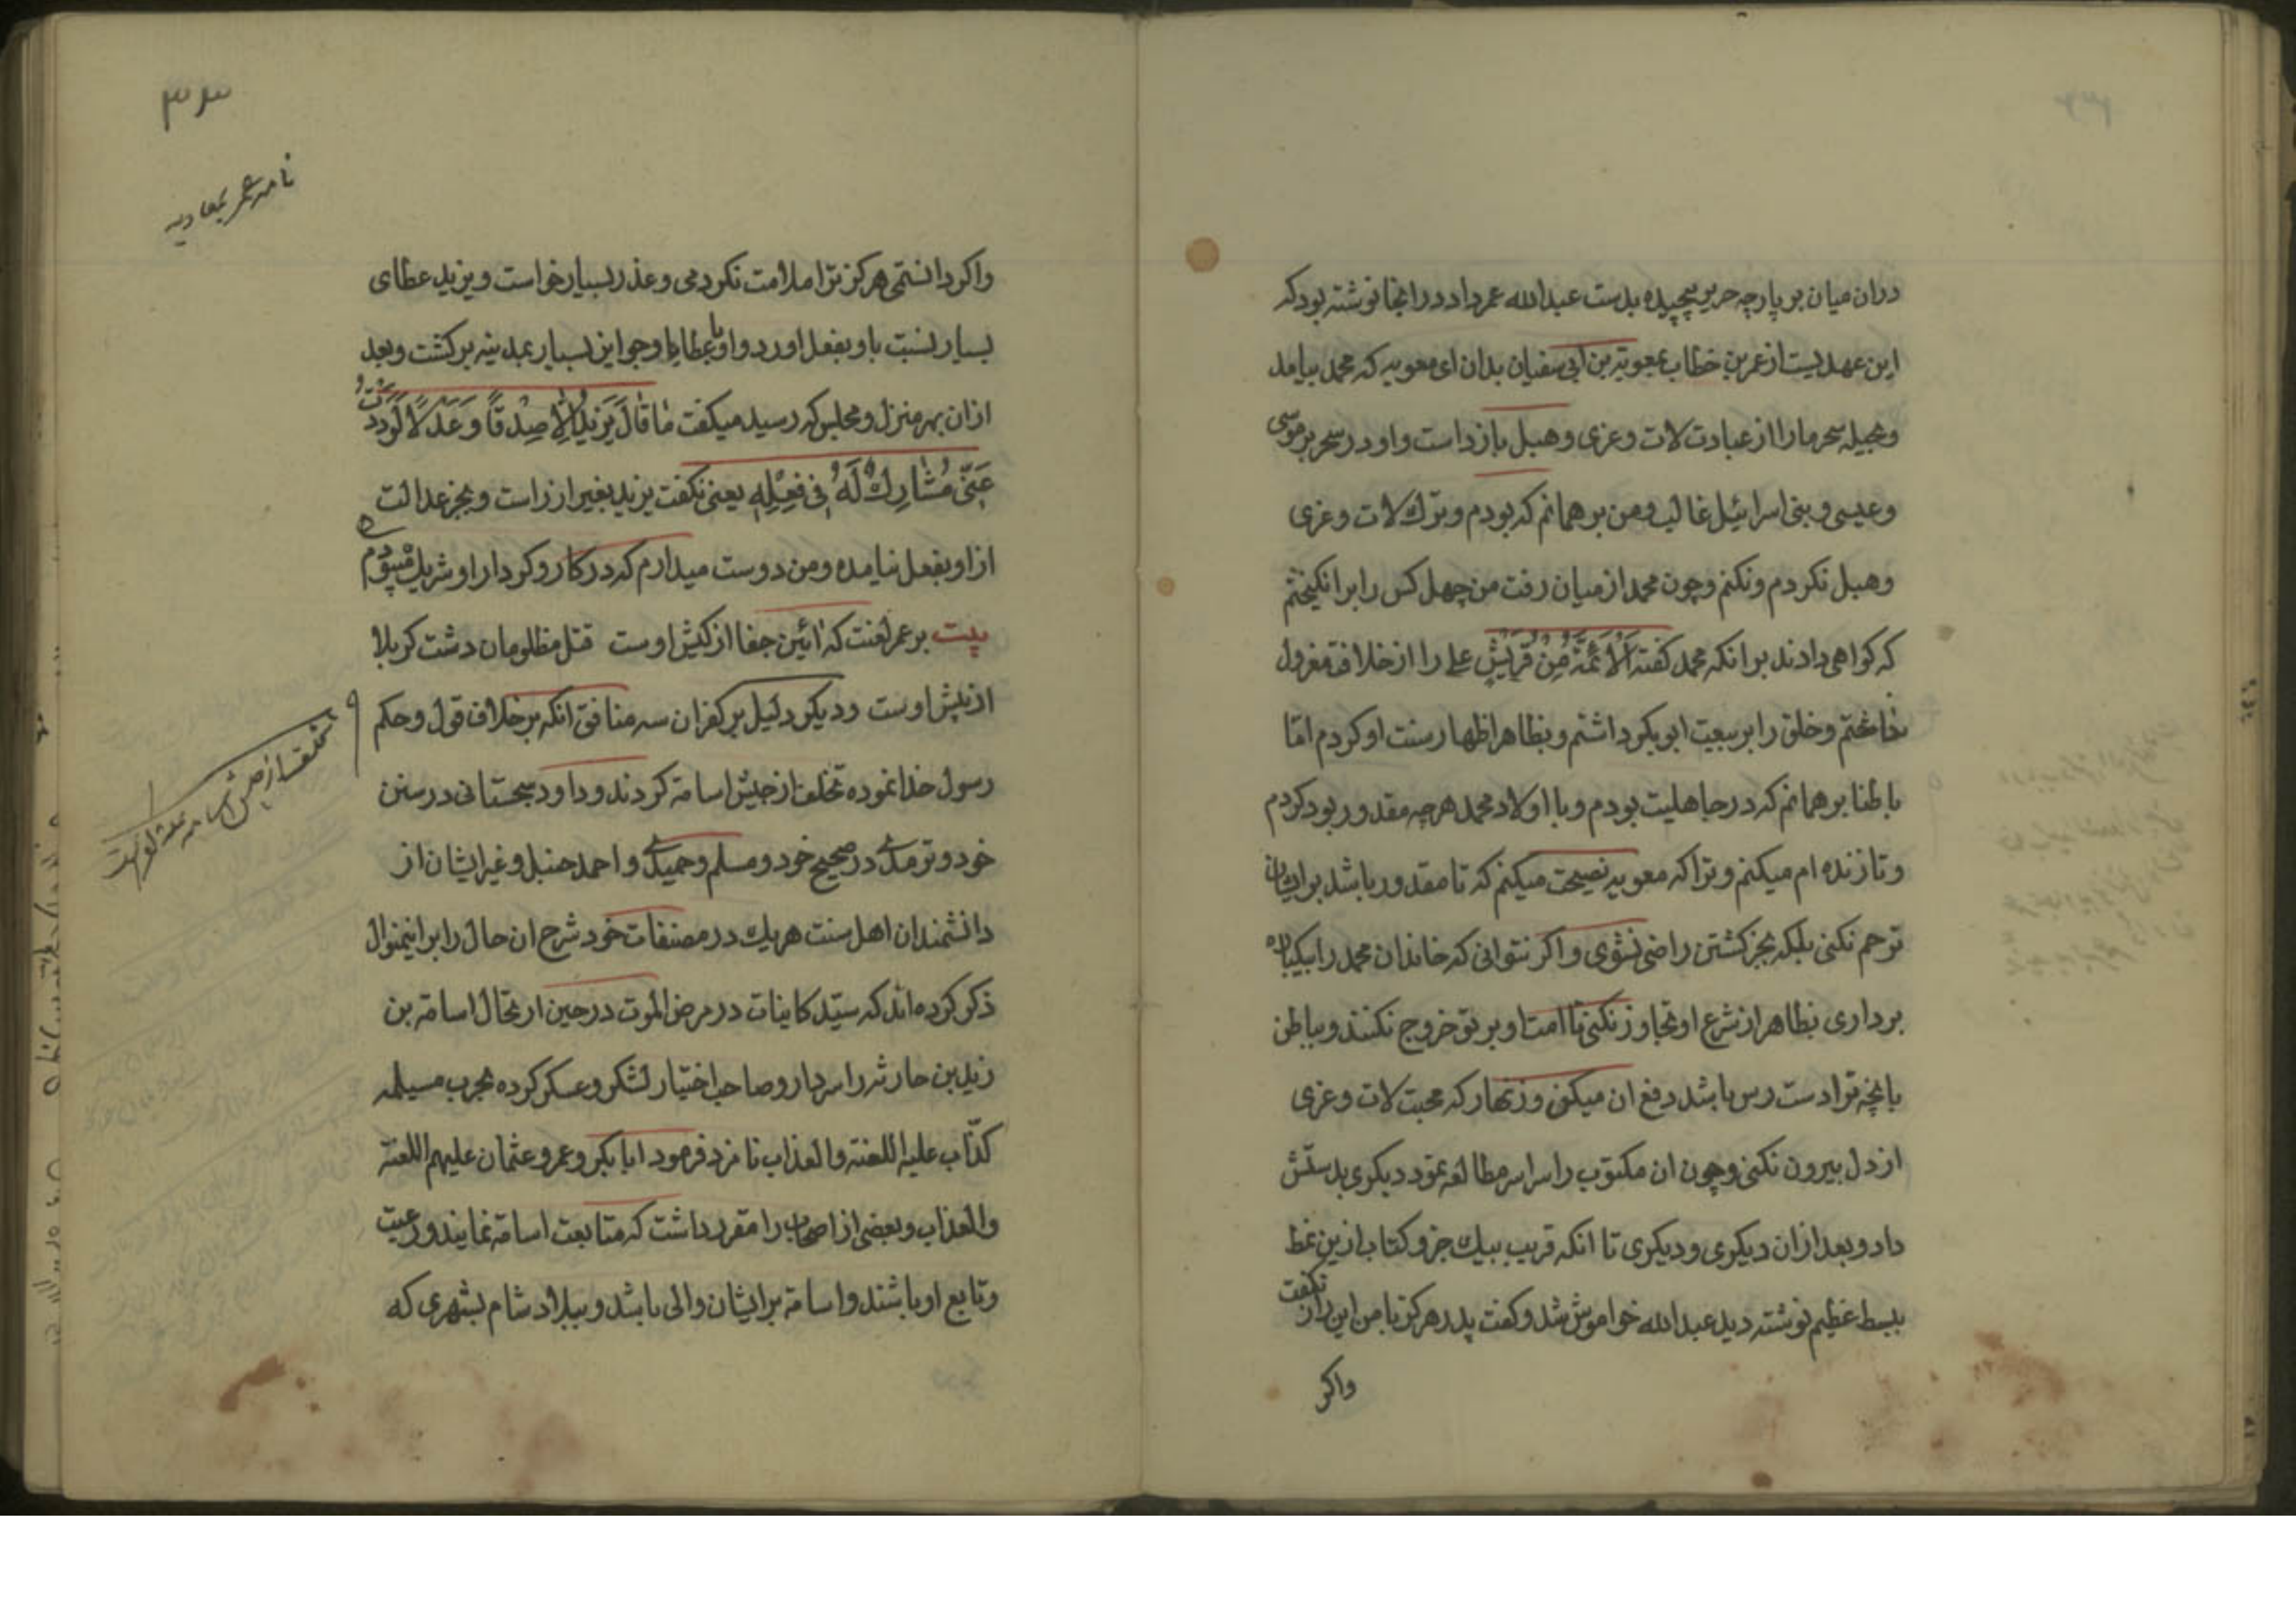 دران میان بر پارچه حریر پیچیده بدست عبدالله عمر داد در انجا نوشته بود که
این عهدیست از عمر بن خطاب بمعویة بن ابی سفیان بدان ای معویه که محمد بیامد
و بحیله سحر ما را از عبادت لات و عزی و هبل باز داشت و او در سحر بر موسی
و عیسی و بنی اسرائیل غالب و من بر همانم که بودم و ترک لات و عزی
و هبل نکردم و نکنم و چون محمد از میان رفت من چهل کس را بر انکیختم
که کواهی دادند بر انکه محمد کفته اَلْاَئمَّةُ مِنْ قُرَیْشٍ علی را از خلافت معزول
ساختم و خلق را بر بیعت ابوبکر داشتم و بظاهر اظهار سنت او کردم امّا
باطنا بر همانم که در جاهلیت بودم و با اولاد محمد هر چه مقدور بود کردم
و تا زنده ام میکنم و ترا که معویه نصیحت میکنم که تا مقدور باشد بر ایشان
ترحم نکنی بلکه بجز کشتن راضی نشوی و اکر نتوانی که خاندان محمد را بیکباره
برداری بظاهر از شرع او تجاوز نکنی تا امت او بر تو خروج نکنند و بباطن
بانچه ترا دست رس باشد دفع ان میکنی و زنهار که محبت لات و عزی
از دل بیرون نکنی و چون ان مکتوب را سراسر مطالعه نمود دیکری بدستش
داد و بعد ازان دیکری و دیکری تا انکه قریب بیک جزو کتاب ازین نمط
ببسط عظیم نوشته دید عبدالله خواموش شد و کفت پدر هرکز با من این راز نکفت
واکر
۳۳
نامه عمر بمعاویه
واکر دانستمی هرکز ترا ملامت نکردمی و عذر بسیار خواست و یزید عطای
بسیار نسبت باو بفعل اورد و او با عطایا و جوایز بسیار بمدینه برکشت و بعد
ازان بهر منزل و مجلس که رسید میکفت مٰا قٰالَ یَزیدُ اِلّا صِدْقاً وَ عَدْلاً لَوَدِدْتُ
عَنّی مُشٰارِكٌ لَهُ فی فِعْلِهِ یعنی نکفت یزید بغیر از راست و بجز عدالت
از او بفعل نیامده و من دوست میدارم که در کار و کردار او شریک میبودم
بیت بر عمر لعنت که ائین جفا از کیش اوست قتل مظلومان دشت کربلا
از پیش اوست و دیکر دلیل بر کفران سه منافق انکه بر خلاف قول و حکم
رسول خدا نموده تخلف از جیش اسامة کردند و داود سجستانی در سنن
خود و ترمدی در صحیح خود و مسلم و حمیدی و احمد حنبل و غیر ایشان از
دانشمندان اهل سنت هریک در مصنفات خود شرح ان حال را بر اینمنوال
ذکر کرده اند که سیّد کاینات در مرض الموت در حین ارتحال اسامة بن
زید بن حارثه را سردار و صاحب اختیار لشکر و عسکر کرده بحرب مسیلمه
کذّاب علیه اللعنه والعذاب نامزد فرمود ابابکر و عمر و عثمان علیهم اللعنه
والعذاب و بعضی از اصحاب را مقرر داشت که متابعت اسامة نمایند و رعیت
و تابع او باشند و اسامة بر ایشان والی باشد و ببلاد شام بشهری که
تخلف از جیش اسامه